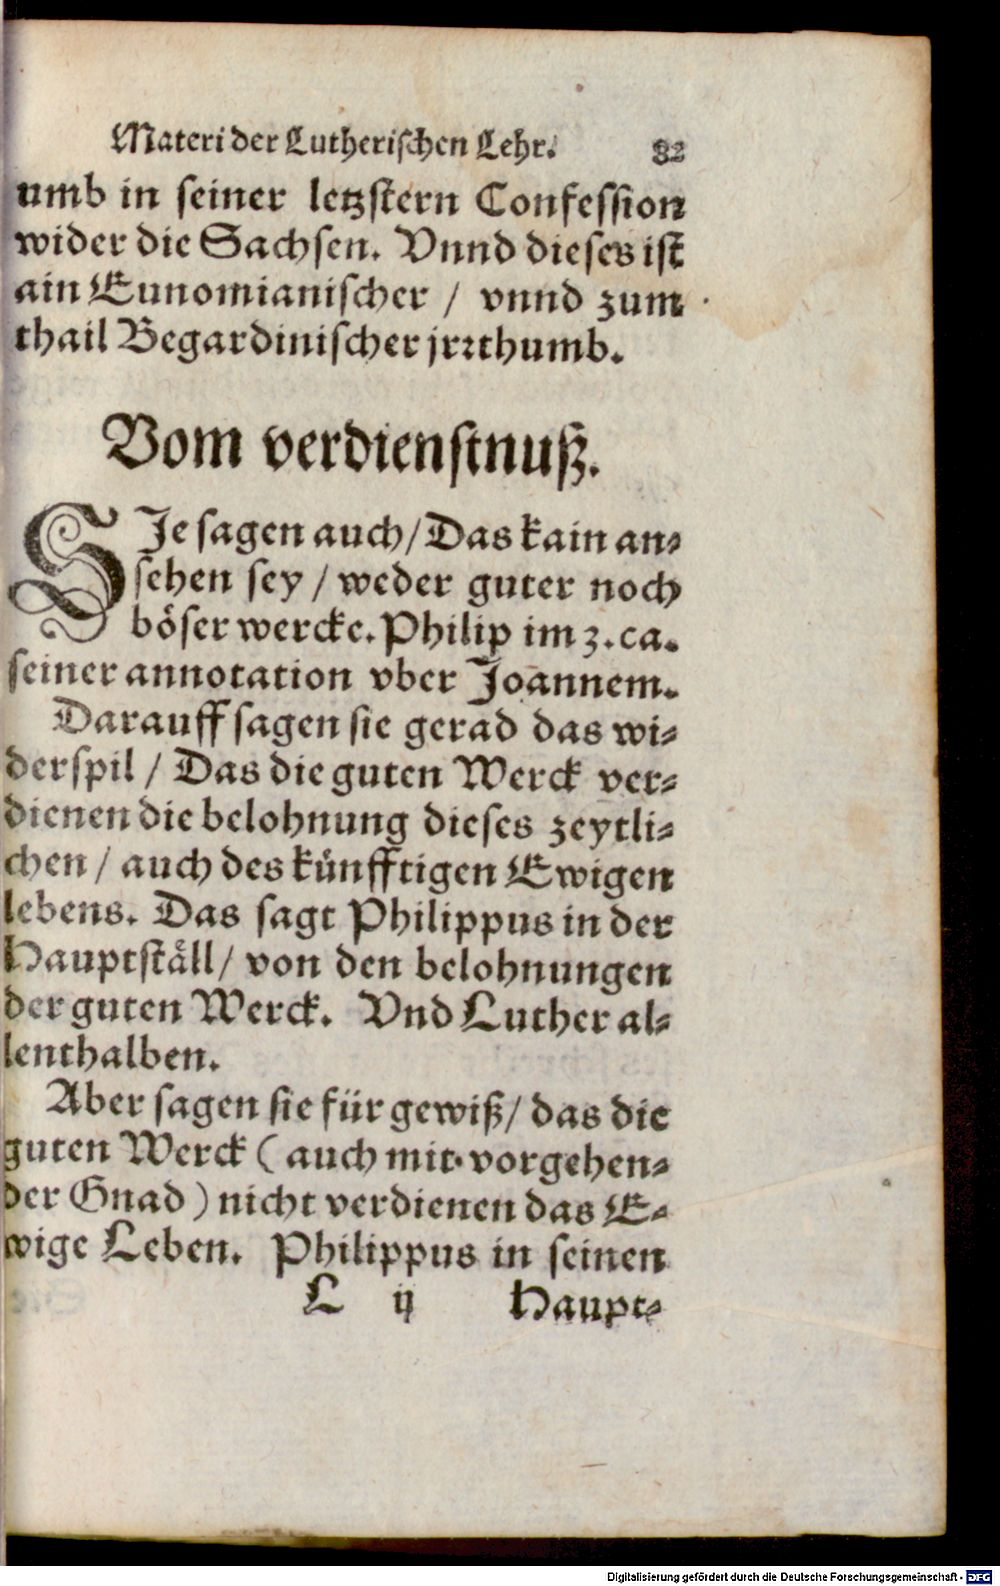 Materi der Lutherischen Lehr. 82
umb in seiner letzstern Confession
wider die Sachsen. Vnnd dieses ist
ain Eunomianischer / vnnd zum
thail Begardinischer jrrthumb.
Vom verdienstnuß.
SJe sagen auch / Das kain an-
sehen sey / weder guter noch
böser wercke. Philip im 3. ca.
seiner annotation vber Joannem.
Darauff sagen sie gerad das wi-
derspil / Das die guten Werck ver-
dienen die belohnung dieses zeytli-
chen / auch des künfftigen Ewigen
lebens. Das sagt Philippus in der
Hauptställ / von den belohnungen
der guten Werck. Vnd Luther al-
lenthalben.
Aber sagen sie für gewiß / das die
guten Werck ( auch mit vorgehen-
der Gnad ) nicht verdienen das E-
wige Leben. Philippus in seinen
L ij Haupt-
Digitalisierung gefördert durch die Deutsche Forschungsgemeinschaft - DFG